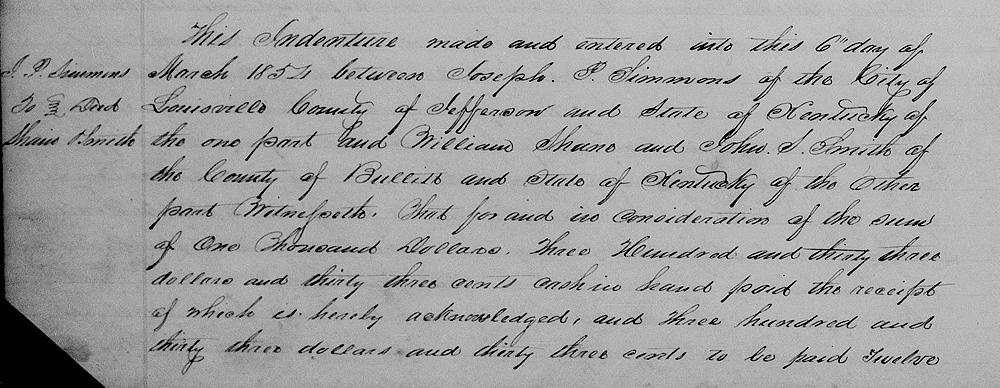 This Indenture made and entered into this 6" day of
J. P. Simmons
March 1854 between Joseph. P. Simmons of the City of
To Deed
Louisville County of Jefferson and State of Kentucky of
Shane & Smith
the one part and William Shane and John. S. Smith of
the County of Bullitt and State of Kentucky of the Other
part Witnesseth. That for and in consideration of the sum
of One Thousand Dollars. Three Hundred and thirty three
dollars and thirty three cents cash in hand paid the receipt
of which is hereby acknowledged, and three hundred and
thirty three dollars and thirty three cents to be paid Twelve